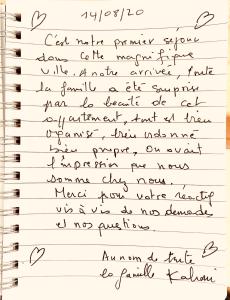 14/08/20
C'est notre premier sejour
dans cette magnifique
ville. A notre arrivée, toute
la famille a été surprise
par la beauté de cet
appartement, tout est bien
organisé, bien ordonné
bien propre, on avait
l'impression que nous
somme chez nous.
Merci pour votre réactif
vis à vis de nos demandes
et nos questions.
Au nom de toute
la famille